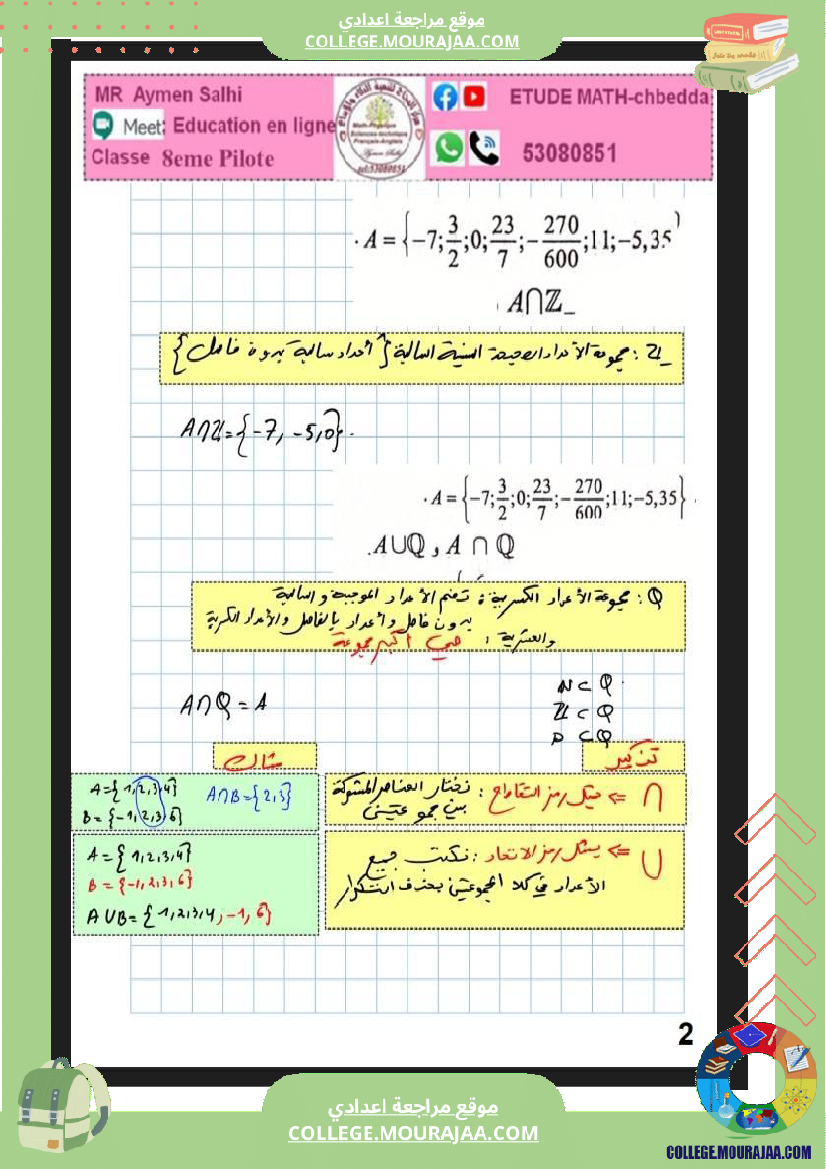 موقع مراجعة اعدادي
COLLEGE.MOURAJAA.COM
MR Aymen Salhi
Meet: Education en ligne
Classe 8eme Pilote
ETUDE MATH-chbedda
53080851
. A = {-7; 3/2; 0; 23/7; -270/600; 11; -5,35}
A∩ℤ
ℤ : مجموعة الأعداد الصحيحة النسبية السالبة {أعداد سالبة بدون فاصل}
A∩ℤ={-7, -5,0}.
. A = {-7; 3/2; 0; 23/7; -270/600; 11; -5,35}
.A∪ℚ , A ∩ ℚ
ℚ : مجموعة الأعداد الكسرية : تضم الأعداد الموجبة و السالبة
بدون فاصل وأعداد بالفاصل والأعداد الكسرية
والعشرية : هي أكبر مجموعة
A∩ℚ = A
ℕ ⊂ ℚ
ℤ ⊂ ℚ
D ⊂ ℚ
تذكير
مثال
∩ => يمثل رمز التقاطع : نختار العناصر المشتركة
بين مجموعتين
A={1,2,3,4}
B={-1,2,3,6}
A∩B={2,3}
∪ => يمثل رمز الاتحاد : نكتب جميع
الأعداد في كلا المجموعتين بحذف التكرار
A={1,2,3,4}
B={-1,2,3,6}
A∪B={1,2,3,4,-1,6}
2
موقع مراجعة اعدادي
COLLEGE.MOURAJAA.COM
COLLEGE.MOURAJAA.COM